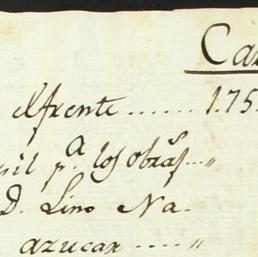 Ca
elfrente ...... 1.75
sil p.ª los obrãs ... "
D. Lino Na
azucar .... "